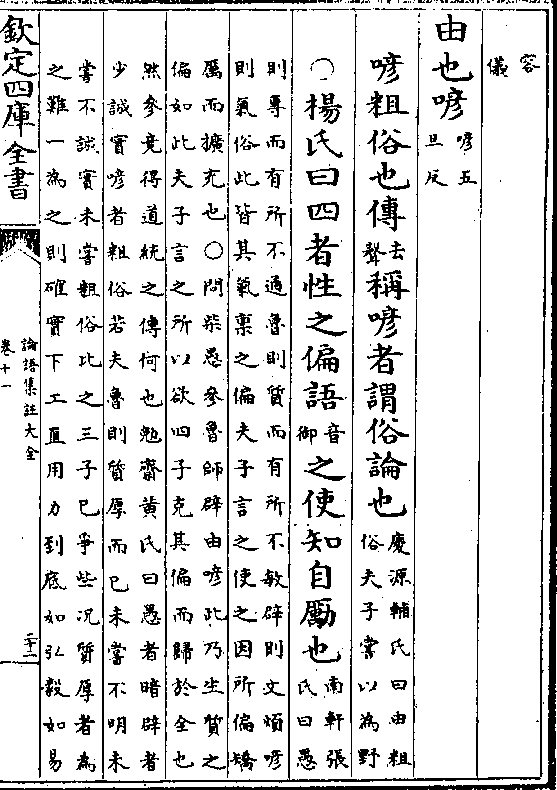 容
儀
由也喭
喭五
旦反
喭粗俗也傳
去
聲
稱喭者謂俗論也
慶源輔氏曰由粗
俗夫子嘗以為野
○楊氏曰四者性之偏語
音
御
之使知自勵也
南軒張
氏曰愚
則專而有所不通魯則質而有所不敏辟則文煩喭
則氣俗此皆其氣禀之偏夫子言之使之因所偏矯
厲而擴充也○問柴愚參魯師辟由喭此乃生質之
偏如此夫子言之所以欲四子克其偏而歸於全也
然參竟得道統之傳何也勉齋黃氏曰愚者暗辟者
少誠實喭者粗俗若夫魯則質厚而已未嘗不明未
嘗不誠實未嘗粗俗比之三子已爭些況質厚者為
之難一為之則確實下工直用力到底如弘毅如易
欽定四庫全書
論語集註大全
卷十一